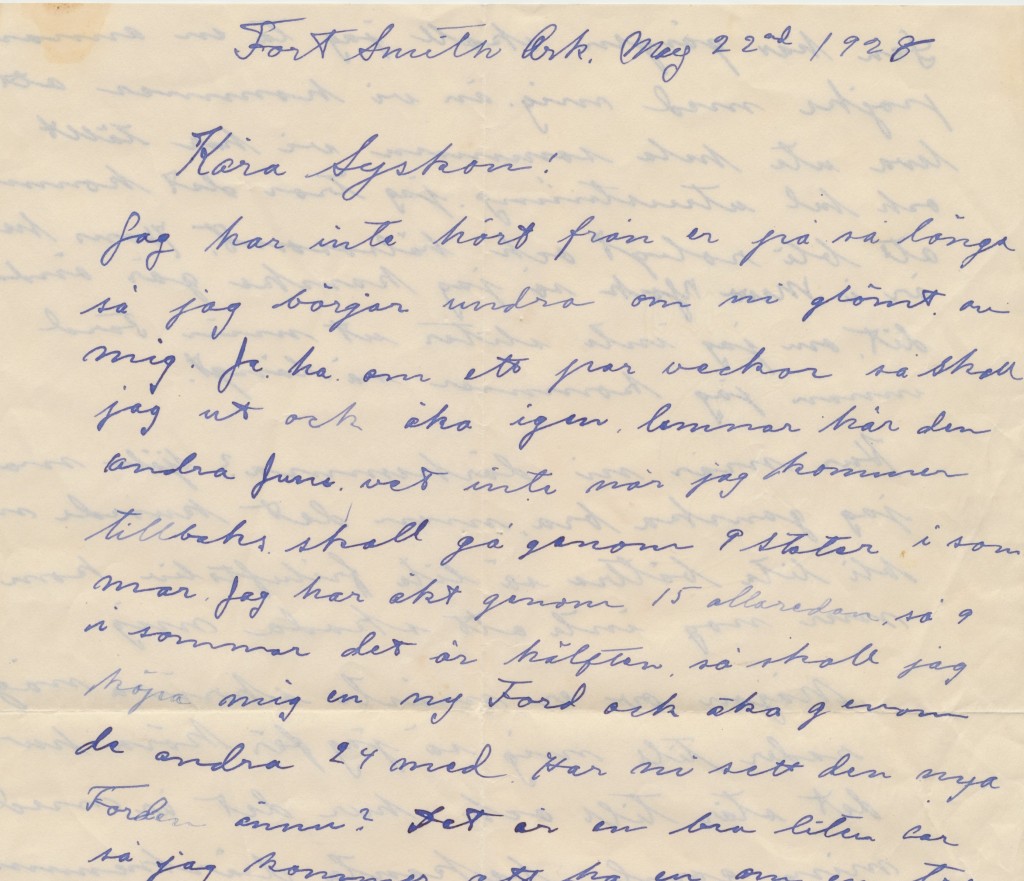 Fort Smith Ark. May 22nd 1928
Kära Syskon!
Jag har inte hört från er på så länge
så jag börjar undra om ni glömt av
mig. Ja. ha. om ett par veckor så skall
jag ut ock åka igen. lemnar här den
andra June. vet inte när jag kommer
tillbaks. skall gå genom 9 stater i som
mar. Jag har åkt genom 15 allaredan. så 9
i sommar det är hälften. så skall jag
köpa mig en ny Ford ock åka genom
de andra 24 med. Har ni sett den nya
Forden ännu? Det är en bra liten car
så jag kommer att ha en om en